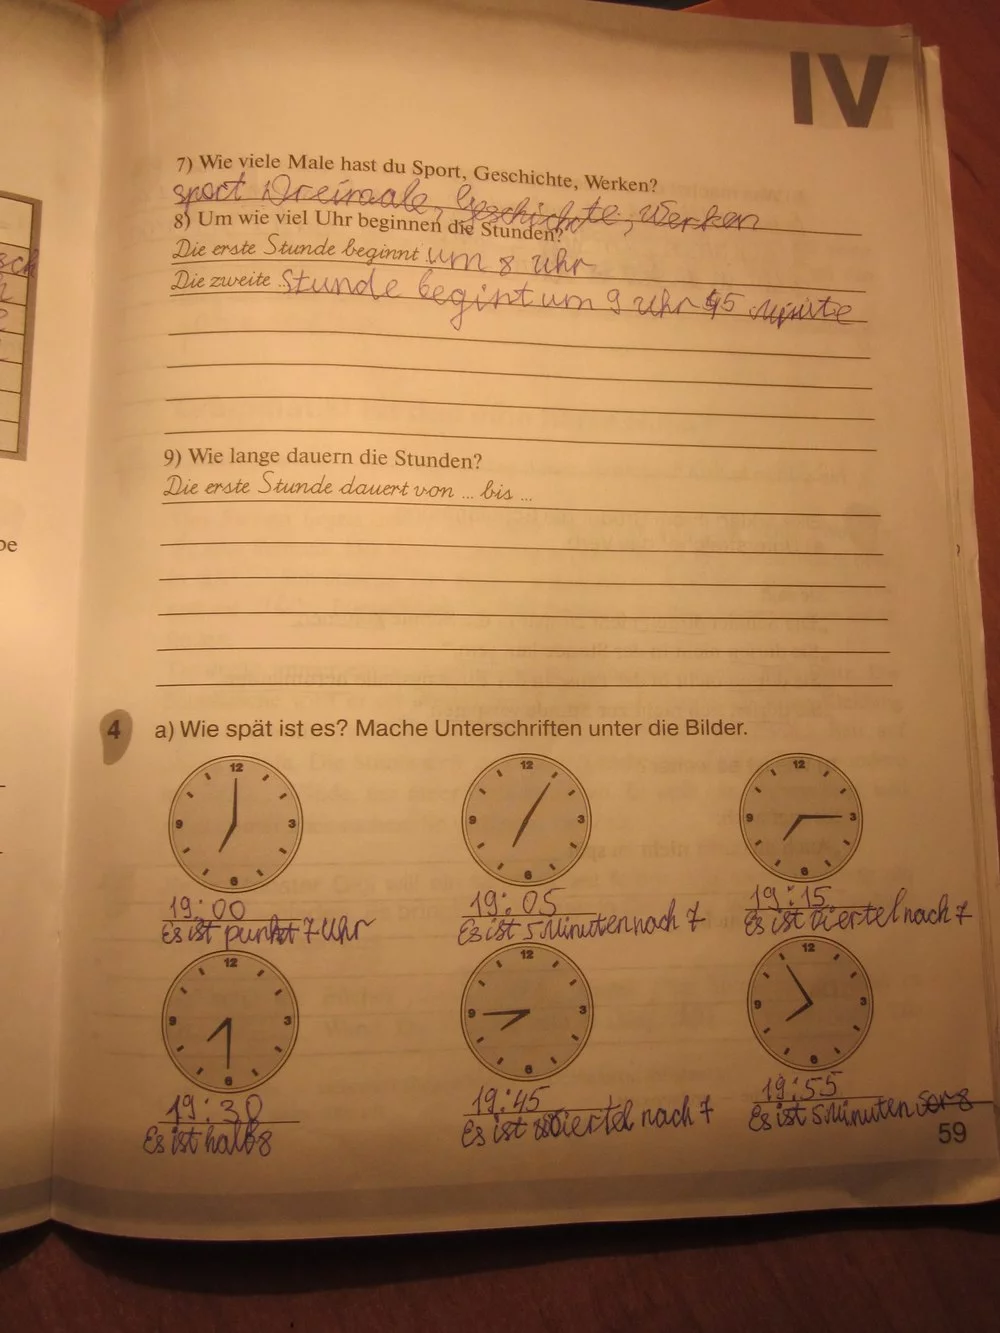 IV
7) Wie viele Male hast du Sport, Geschichte, Werken?
sport Dreimale, Geschichte, Werken
8) Um wie viel Uhr beginnen die Stunden?
Die erste Stunde beginnt um 8 Uhr
Die zweite Stunde begint um 9 Uhr 45 Minute
9) Wie lange dauern die Stunden?
Die erste Stunde dauert von ... bis ...
4 a) Wie spät ist es? Mache Unterschriften unter die Bilder.
12 3 6 9
12 3 6 9
12 3 6 9
19:00 19:05 19:15
Es ist punkt 7 Uhr Es ist 5 Minuten nach 7 Es ist Viertel nach 7
12 3 6 9
12 3 6 9
12 3 6 9
19:30 19:45 19:55
Es ist halb 8 Es ist Viertel nach 7 Es ist 5 Minuten vor 8
59